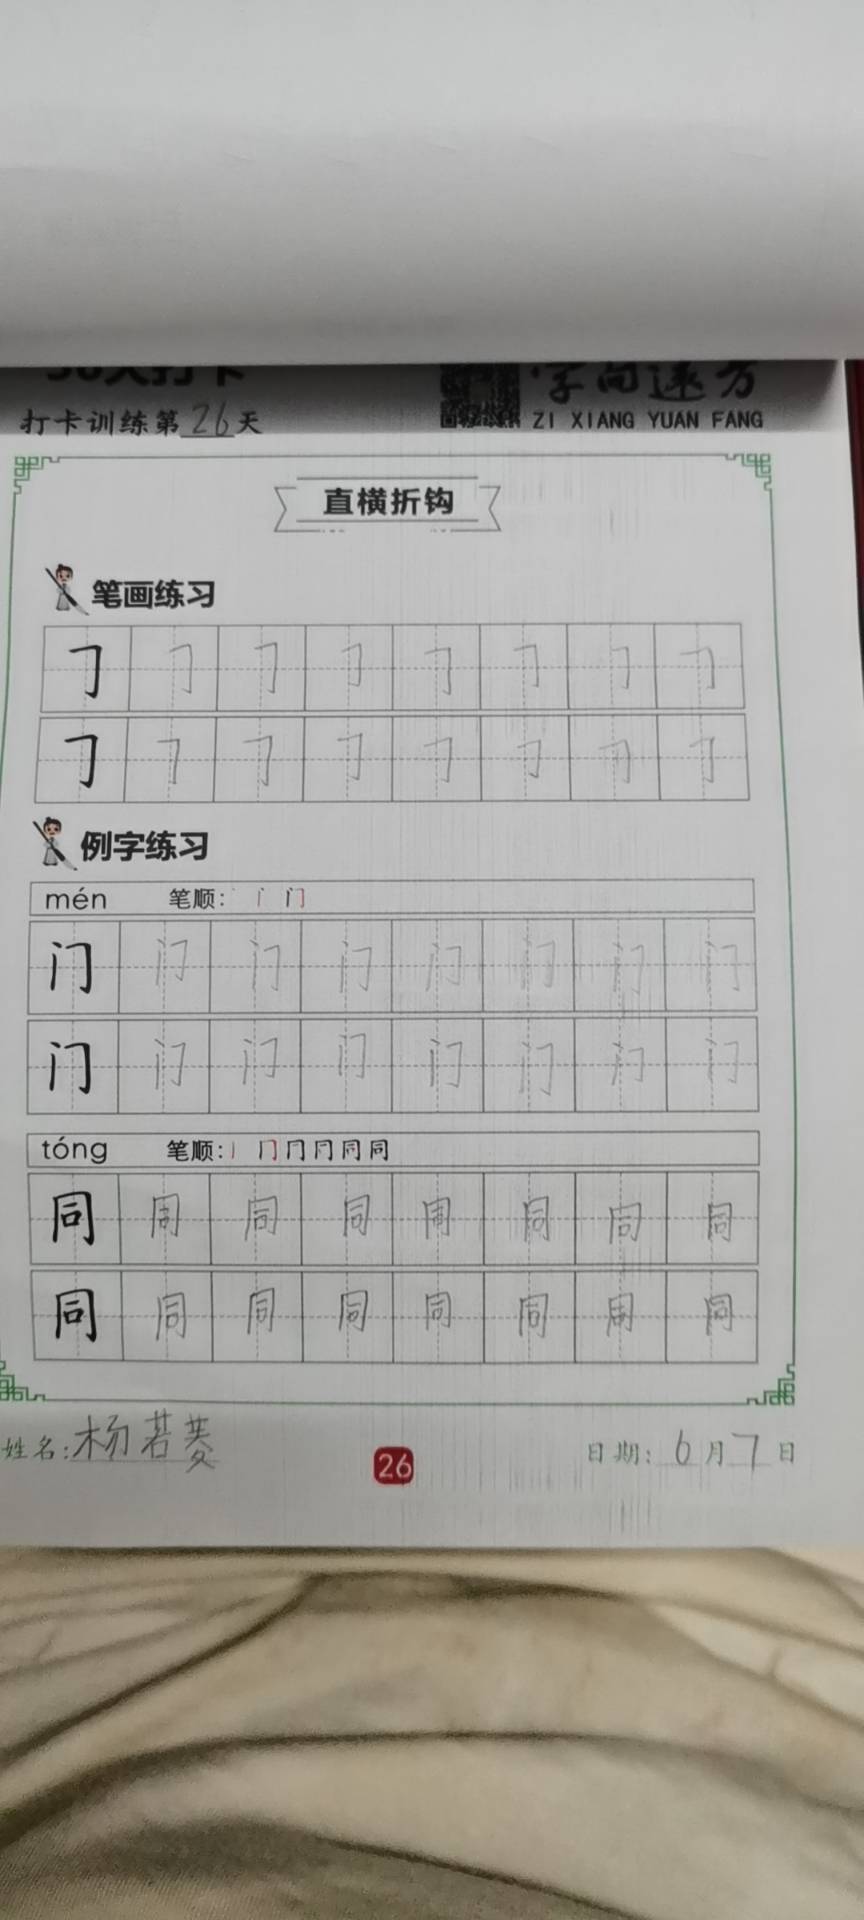 打卡训练第26天
字向远方
ZI XIANG YUAN FANG
直横折钩
笔画练习
𠃌 𠃌 𠃌 𠃌 𠃌 𠃌 𠃌 𠃌
𠃌 𠃌 𠃌 𠃌 𠃌 𠃌 𠃌 𠃌
例字练习
mén 笔顺:丶 门
门 门 门 门 门 门 门 门
门 门 门 门 门 门 门 门
tóng 笔顺:丨 冂 同 同
同 同 同 同 同 同 同 同
同 同 同 同 同 同 同 同
姓名:杨若菱 26 日期:6月7日